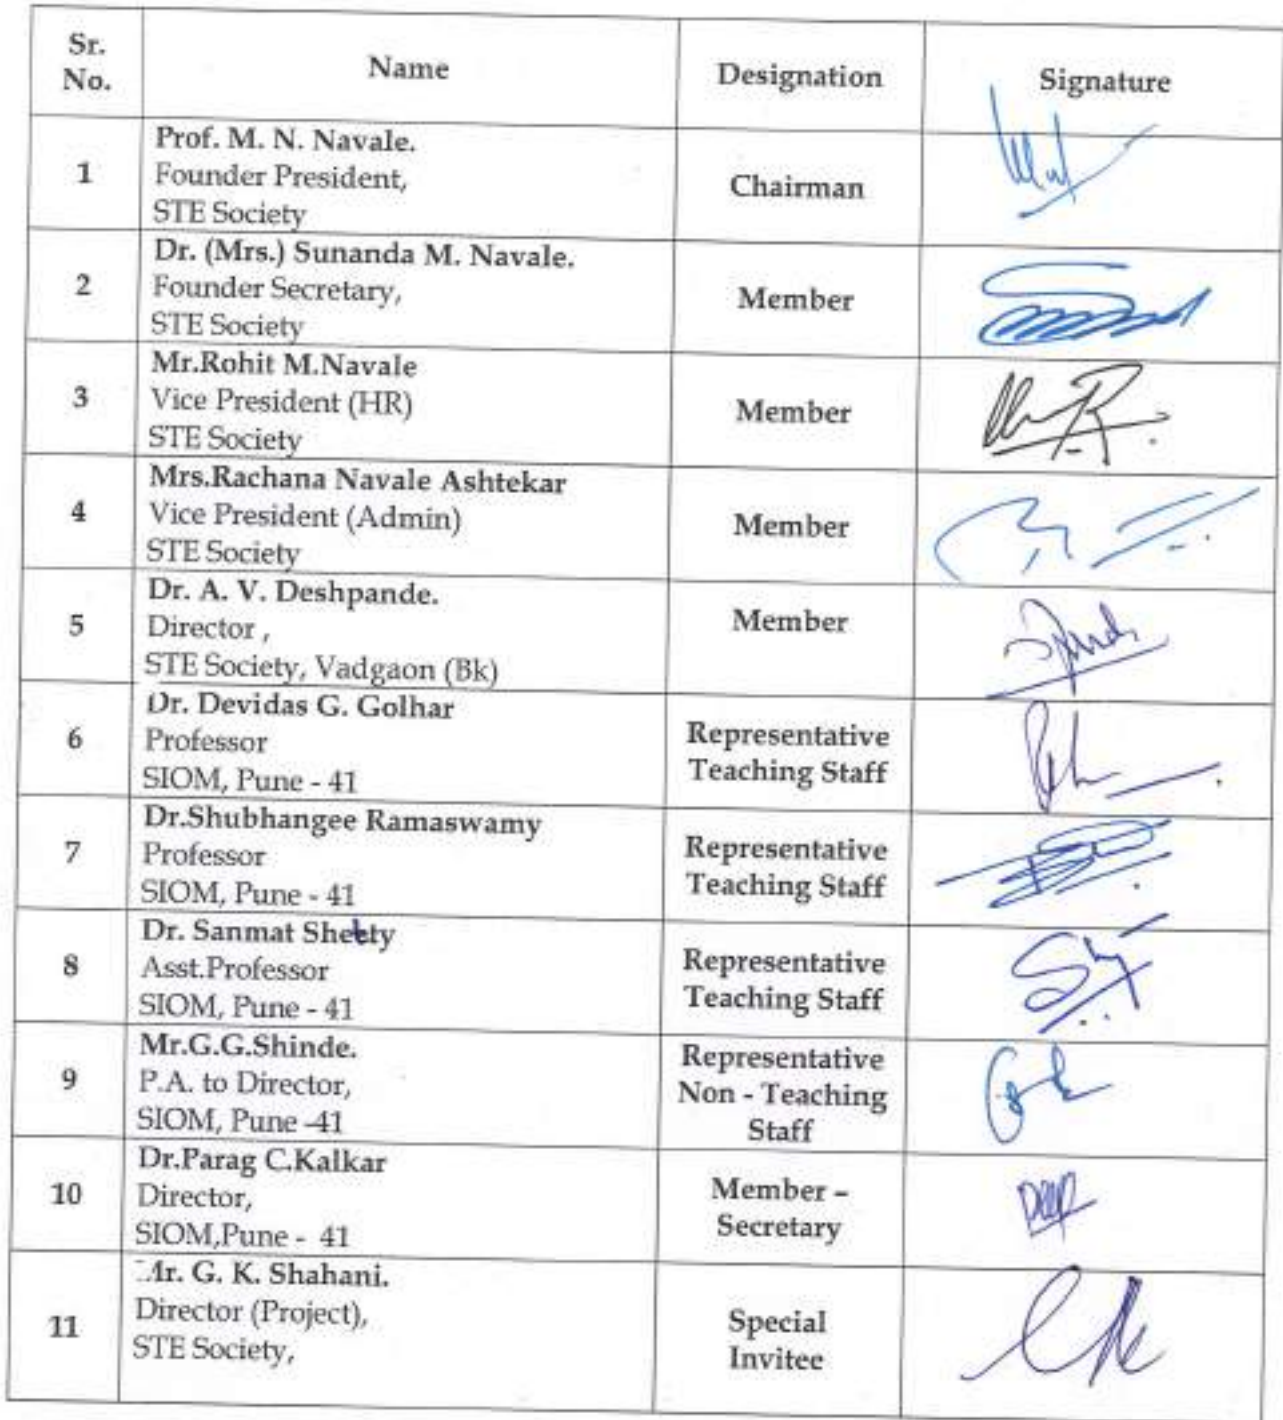 Sr. No.
Name
Designation
Signature
1
Prof. M. N. Navale.
Founder President,
STE Society
Chairman
2
Dr. (Mrs.) Sunanda M. Navale.
Founder Secretary,
STE Society
Member
3
Mr.Rohit M.Navale
Vice President (HR)
STE Society
Member
4
Mrs.Rachana Navale Ashtekar
Vice President (Admin)
STE Society
Member
5
Dr. A. V. Deshpande.
Director ,
STE Society, Vadgaon (Bk)
Member
6
Dr. Devidas G. Golhar
Professor
SIOM, Pune - 41
Representative
Teaching Staff
7
Dr.Shubhangee Ramaswamy
Professor
SIOM, Pune - 41
Representative
Teaching Staff
8
Dr. Sanmat Shetty
Asst.Professor
SIOM, Pune - 41
Representative
Teaching Staff
9
Mr.G.G.Shinde.
P.A. to Director,
SIOM, Pune -41
Representative
Non - Teaching
Staff
10
Dr.Parag C.Kalkar
Director,
SIOM,Pune - 41
Member –
Secretary
11
Mr. G. K. Shahani.
Director (Project),
STE Society,
Special
Invitee